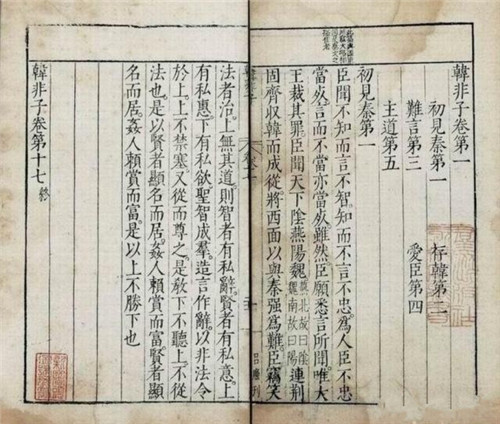 韓非子卷第一
初見秦第一 存韓第二
難言第三 愛臣第四
主道第五
初見秦第一
臣聞不知而言不智知而不言不忠為人臣不忠
當死言而不當亦當死雖然臣願悉言所聞唯大
王裁其罪臣聞天下陰燕陽魏北故曰陰魏南故曰陽連荆
固齊收韓而成從將西面以與秦強為難臣竊笑
法者治上無其道則智者有私辭賢者有私意上
有私惠下有私欲聖智成羣造言作辭以非法令
於上上不禁塞又從而尊之是教下不聽上不從
法也是以賢者顯名而居姦人賴賞而富賢者顯
名而居姦人賴賞而富是以上不勝下也
韓非子卷第十七終